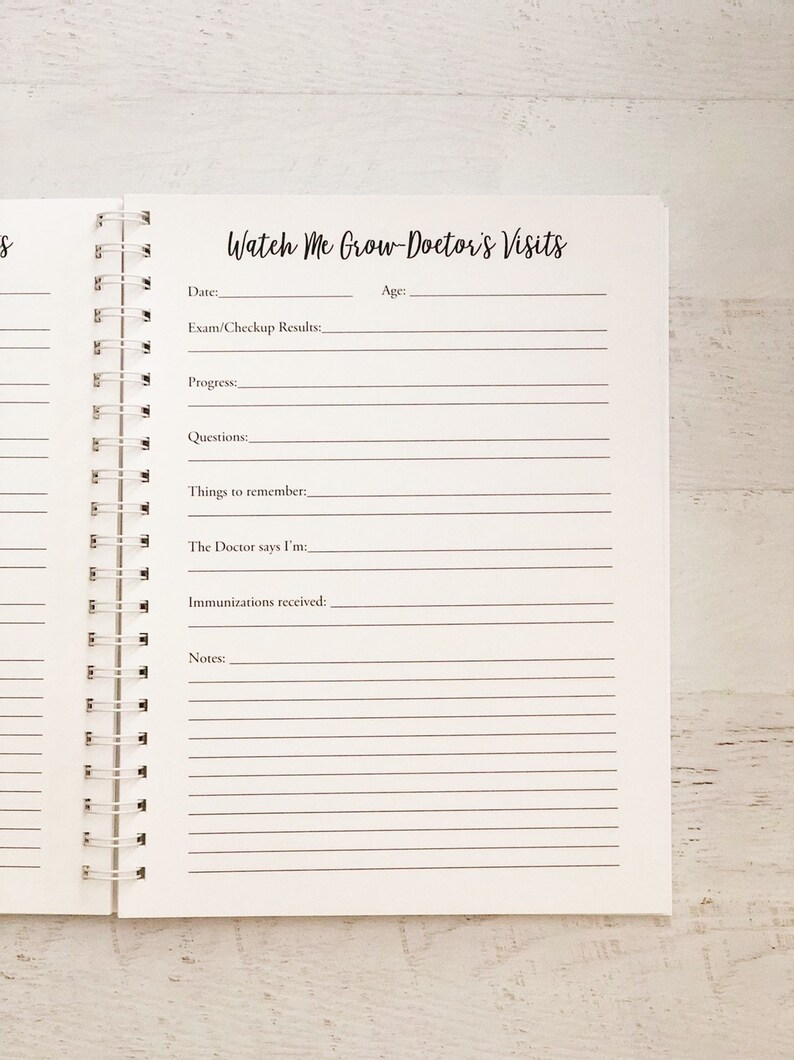 s
Watch Me Grow-Doctor's Visits
Date: Age:
Exam/Checkup Results:
Progress:
Questions:
Things to remember:
The Doctor says I'm:
Immunizations received:
Notes: